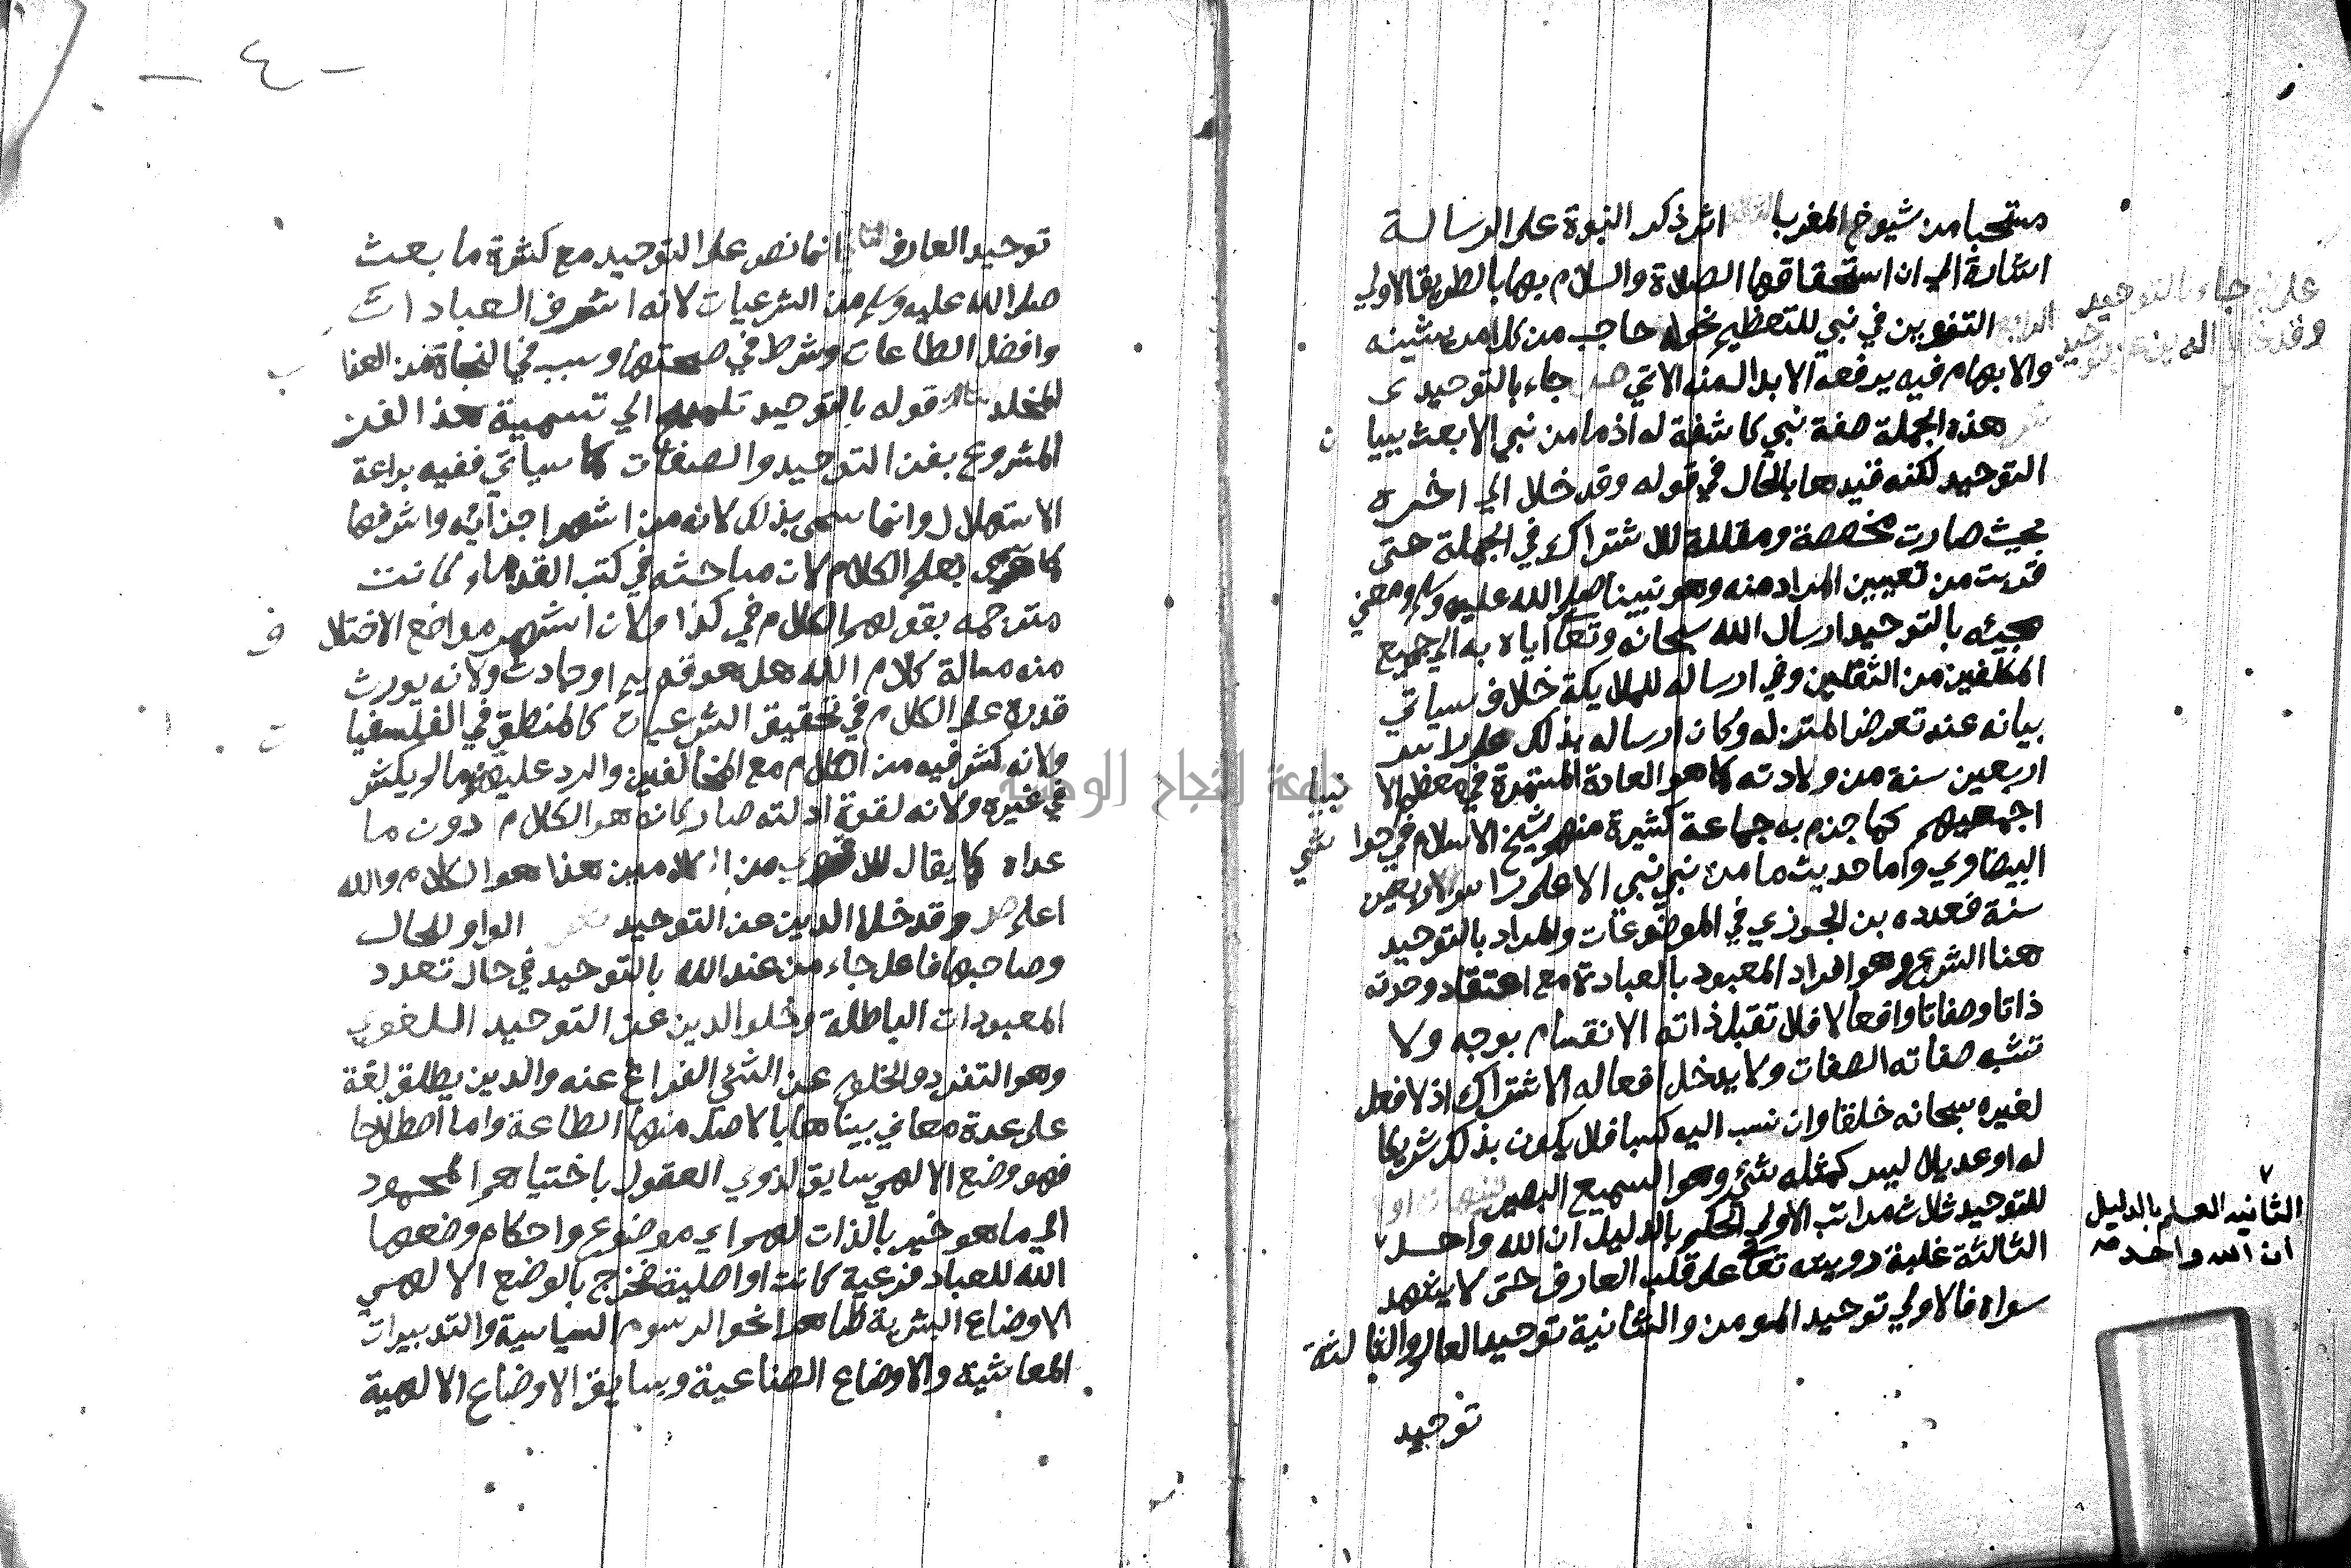 منتخبا من شيوخ المغرب الثالث اثر ذكر النبوة على الرسالة
اشارة الي ان استحقاقها الصلاة والسلام بها بالطريق الاولي
الرابع التنوين في نبي للتعظيم نحو له حاجب من كل امر يشينه
والابهام فيه يرفعه الابدال منه الاتي صـ جاء بالتوحيد ى
هذه الجملة صفة نبي كاشفة له اذ ما من نبي الا بعث ببيان
التوحيد لكنه قيدها بالحال في قوله وقد خلا الي اخره
بحيث صارت مخصصة ومقللة للاشتراك في الجملة حتى
قربت من تعيين المراد منه وهو نبينا صلى الله عليه وسلم ومعني
مجيئه بالتوحيد ارسال الله سبحانه وتعا اياه به الي جميع
المكلفين من الثقلين وفي ارساله للملايكة خلاف سياتي
بيانه عند تعرض المتن له وكان ارساله بذلك على راس
اربعين سنة من ولادته كما هو العادة المستمرة في معظم الانبيا
اجمعهم كما جزم به جماعة كثيرة منهم شيخ الاسلام في حواشي
البيضاوي واما حديث ما من نبي نبي الا على راس الاربعين
سنة فعده بن الجوزي في الموضوعات والمراد بالتوحيد
هنا الشرعي وهو افراد المعبود بالعبادة مع اعتقاد وحدته
ذاتا وصفاتا وافعالا فلا تقبل ذاته الانقسام بوجه ولا
تشبه صفاته الصفات ولا يدخل افعاله الاشتراك اذ لا فعل
لغيره سبحانه خلقا وان نسب اليه كسبا فلا يكون بذلك شريكا
له او عديلا ليس كمثله شيئ وهو السميع البصير
للتوحيد ثلاث مراتب الاولي الحكم بالدليل ان الله واحد
الثالثة غلبة رويته تعا على قلب العارف حتى لا يشهد
سواه فالاولي توحيد المومن والثانية توحيد العالم والثالثة
توحيد
على نبي جاء بالتوحيد
وقد خلا الدين عن التوحيد
الثانيه العلم بالدليل
ان الله واحد صح
- ٤ -
توحيد العارف انما نص على التوحيد مع كثرة ما بعث
صلى الله عليه وسلم من الشرعيات لانه اشرف العبادات
وافضل الطاعات وشرط في صحتها وسبب في النجاة من العذاب
المخلد قوله بالتوحيد تلميح الي تسمية هذا الفن
المشروع بفن التوحيد والصفات كما سياتي ففيه براعة
الاستهلال وانما سمى بذلك لانه من اشهر اجزآئه واشرفها
كما سمى بعلم الكلام لان مباحثه في كتب القدماء كانت
مترجمه بقولهم الكلام في كذا ولان اشهر مواضع الاختلاف
منه مسالة كلام الله هل هو قديم او حادث ولانه يورث
قدرة علي الكلام في تحقيق الشرعيات كالمنطق في الفلسفيات
ولانه كثر فيه من الكلام مع المخالفين والرد عليهم ما لم يكثر
في غيره ولانه لقوة ادلته صار كانه هو الكلام دون ما
عداه كما يقال للاقوي من الكلامين هذا هو الكلام والله
اعلم صـ وقد خلا الدين عن التوحيد الواو للحال
وصاحبها فاعل جاء من عند الله بالتوحيد في حال تعدد
المعبودات الباطلة وخلو الدين عن التوحيد اللغوي
وهو التفرد والخلو عن الشئ الفراغ عنه والدين يطلق لغة
على عدة معاني بيناها بالاصل منها الطاعة واما اصطلاحا
فهو وضع الالهي سايق لذوي العقول باختياهم المحمود
الي ما هو خير بالذات لهم اي موضوع واحكام وضعها
الله للعباد فرعية كانت او اصلية فخرج بالوضع الالهي
الاوضاع البشرية ظاهرا نحو الرسوم السياسية والتدبيرات
المعاشيه والاوضاع الصناعية وبسايق الاوضاع الالهية
جامعة النجاح الوطنية